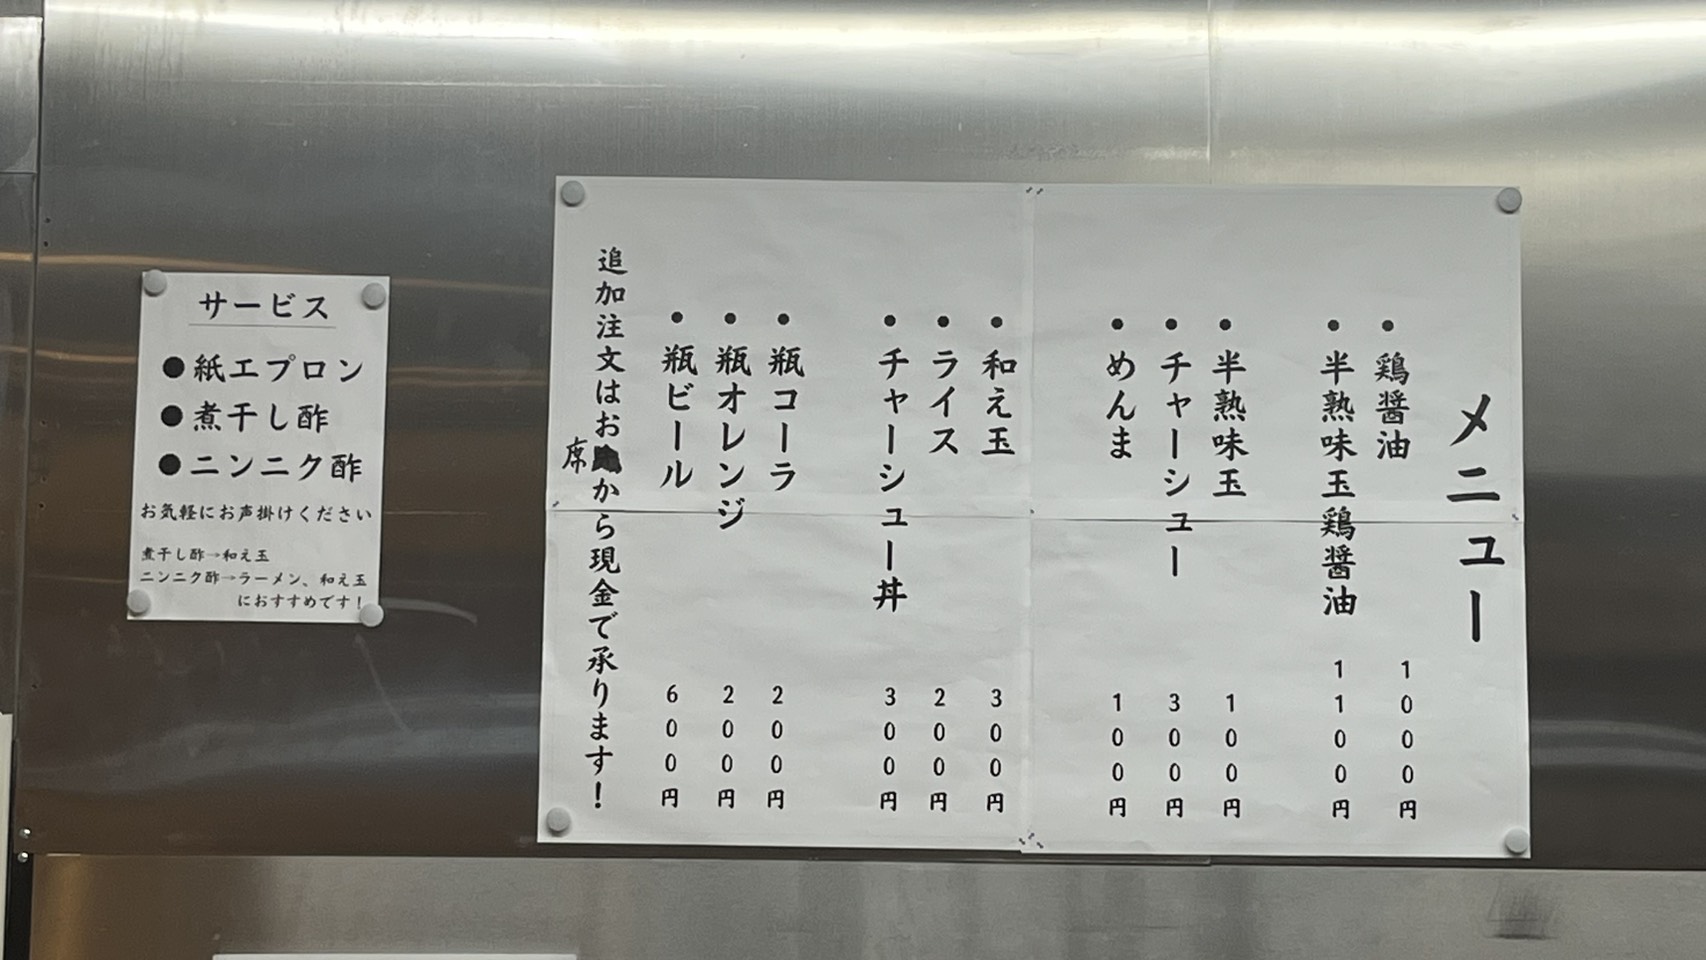 メニュー
・鶏醤油 1000円
・半熟味玉鶏醤油 1100円
・半熟味玉 100円
・チャーシュー 300円
・めんま 100円
・和え玉 300円
・ライス 200円
・チャーシュー丼 300円
・瓶コーラ 200円
・瓶オレンジ 200円
・瓶ビール 600円
追加注文はお席から現金で承ります!
サービス
●紙エプロン
●煮干し酢
●ニンニク酢
お気軽にお声掛けください
煮干し酢→和え玉
ニンニク酢→ラーメン、和え玉
におすすめです!